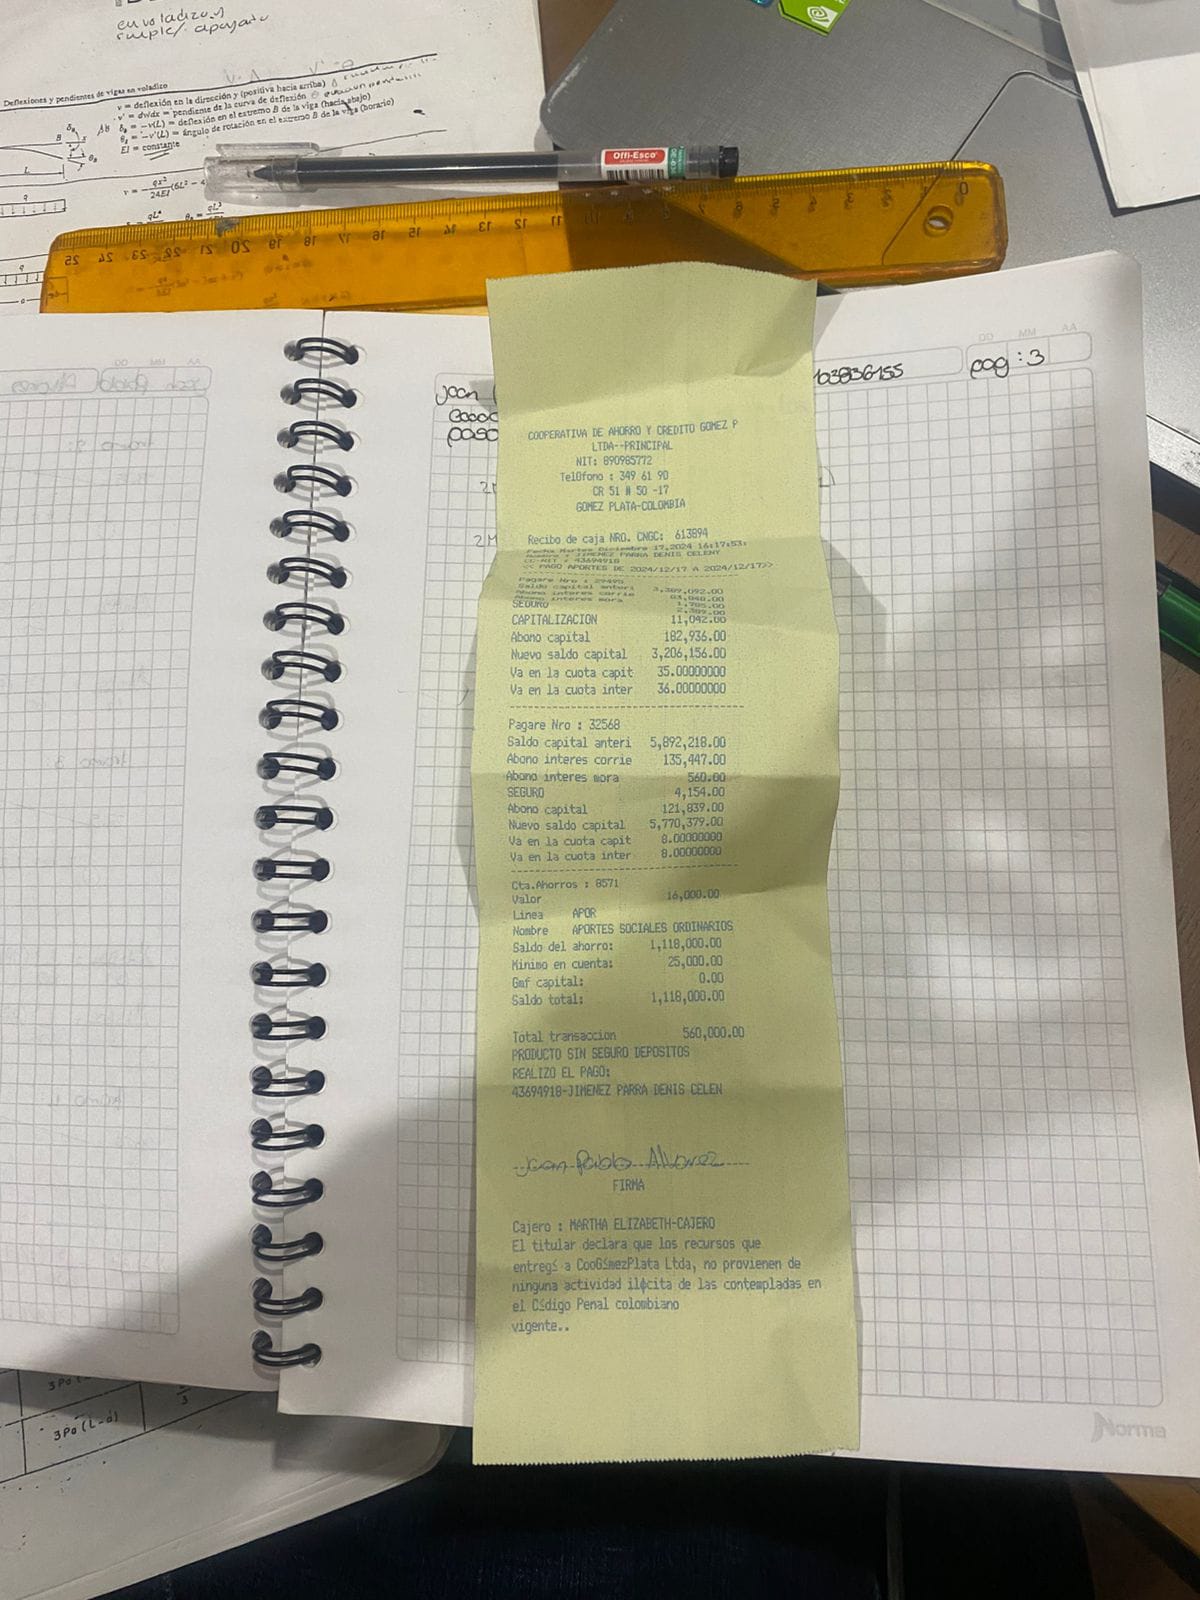 en voladizo y
simple/. apoyado
Deflexiones y pendientes de vigas en voladizo
v = deflexión en la dirección y (positiva hacia arriba)
v' = dv/dx = pendiente de la curva de deflexión
δB = −v(L) = deflexión en el extremo B de la viga (hacia abajo)
θB = −v'(L) = ángulo de rotación en el extremo B de la viga (horario)
EI = constante
Offi-Esco
0
11 12 13 14 15 16 17 18 19 20 21 22 23 24 25
DD MM AA
103836155
pag : 3
COOPERATIVA DE AHORRO Y CREDITO GOMEZ P
LTDA--PRINCIPAL
NIT: 890985772
Tel0fono : 349 61 90
CR 51 # 50 -17
GOMEZ PLATA-COLOMBIA
Recibo de caja NRO. CNGC: 613894
Fecha Martes Diciembre 17,2024 16:17:53:
Nombre : JIMENEZ PARRA DENIS CELENY
CC-NIT : 43694918
<< PAGO APORTES DE 2024/12/17 A 2024/12/17>>
Pagare Nro : 29495
Saldo capital anteri 3,389,092.00
Abono interes corrie
Abono interes mora 1,785.00
SEGURO 2,389.00
CAPITALIZACION 11,042.00
Abono capital 182,936.00
Nuevo saldo capital 3,206,156.00
Va en la cuota capit 35.00000000
Va en la cuota inter 36.00000000
Pagare Nro : 32568
Saldo capital anteri 5,892,218.00
Abono interes corrie 135,447.00
Abono interes mora 560.00
SEGURO 4,154.00
Abono capital 121,839.00
Nuevo saldo capital 5,770,379.00
Va en la cuota capit 8.00000000
Va en la cuota inter 8.00000000
Cta.Ahorros : 8571
Valor 16,000.00
Linea APOR
Nombre APORTES SOCIALES ORDINARIOS
Saldo del ahorro: 1,118,000.00
Minimo en cuenta: 25,000.00
Gmf capital: 0.00
Saldo total: 1,118,000.00
Total transaccion 560,000.00
PRODUCTO SIN SEGURO DEPOSITOS
REALIZO EL PAGO:
43694918-JIMENEZ PARRA DENIS CELEN
Juan Pablo Alvarez
FIRMA
Cajero : MARTHA ELIZABETH-CAJERO
El titular declara que los recursos que
entregś a CooGśmezPlata Ltda, no provienen de
ninguna actividad ilφcita de las contempladas en
el Cśdigo Penal colombiano
vigente..
Norma
3Pa(L-a)